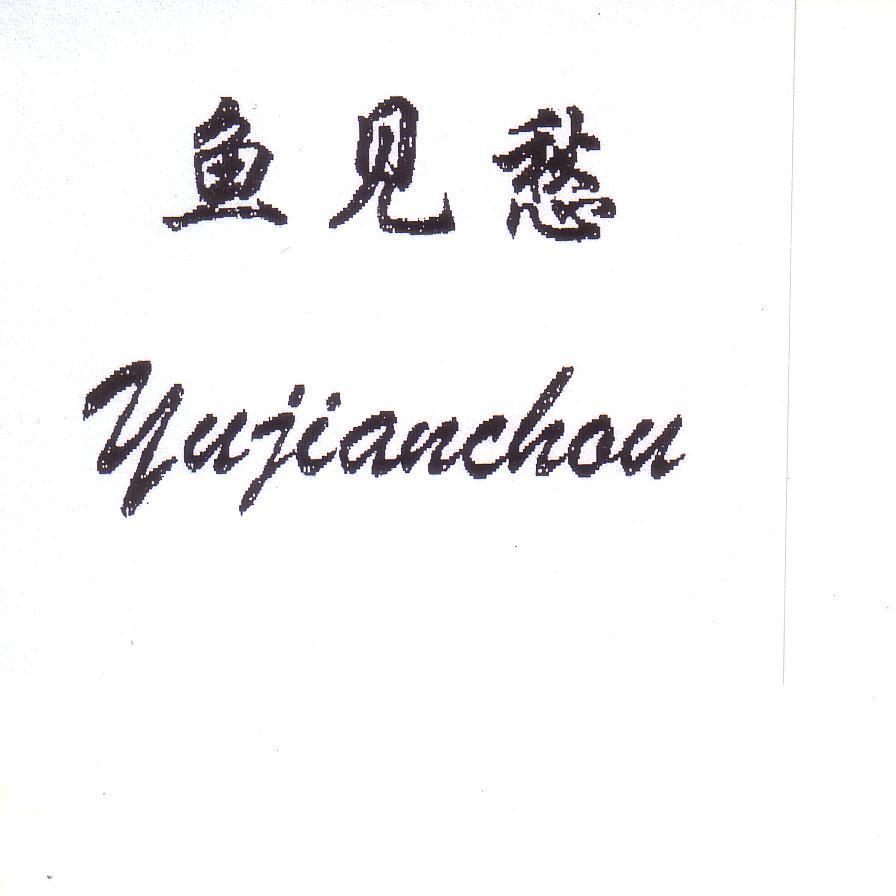 鱼见愁
Yujianchou